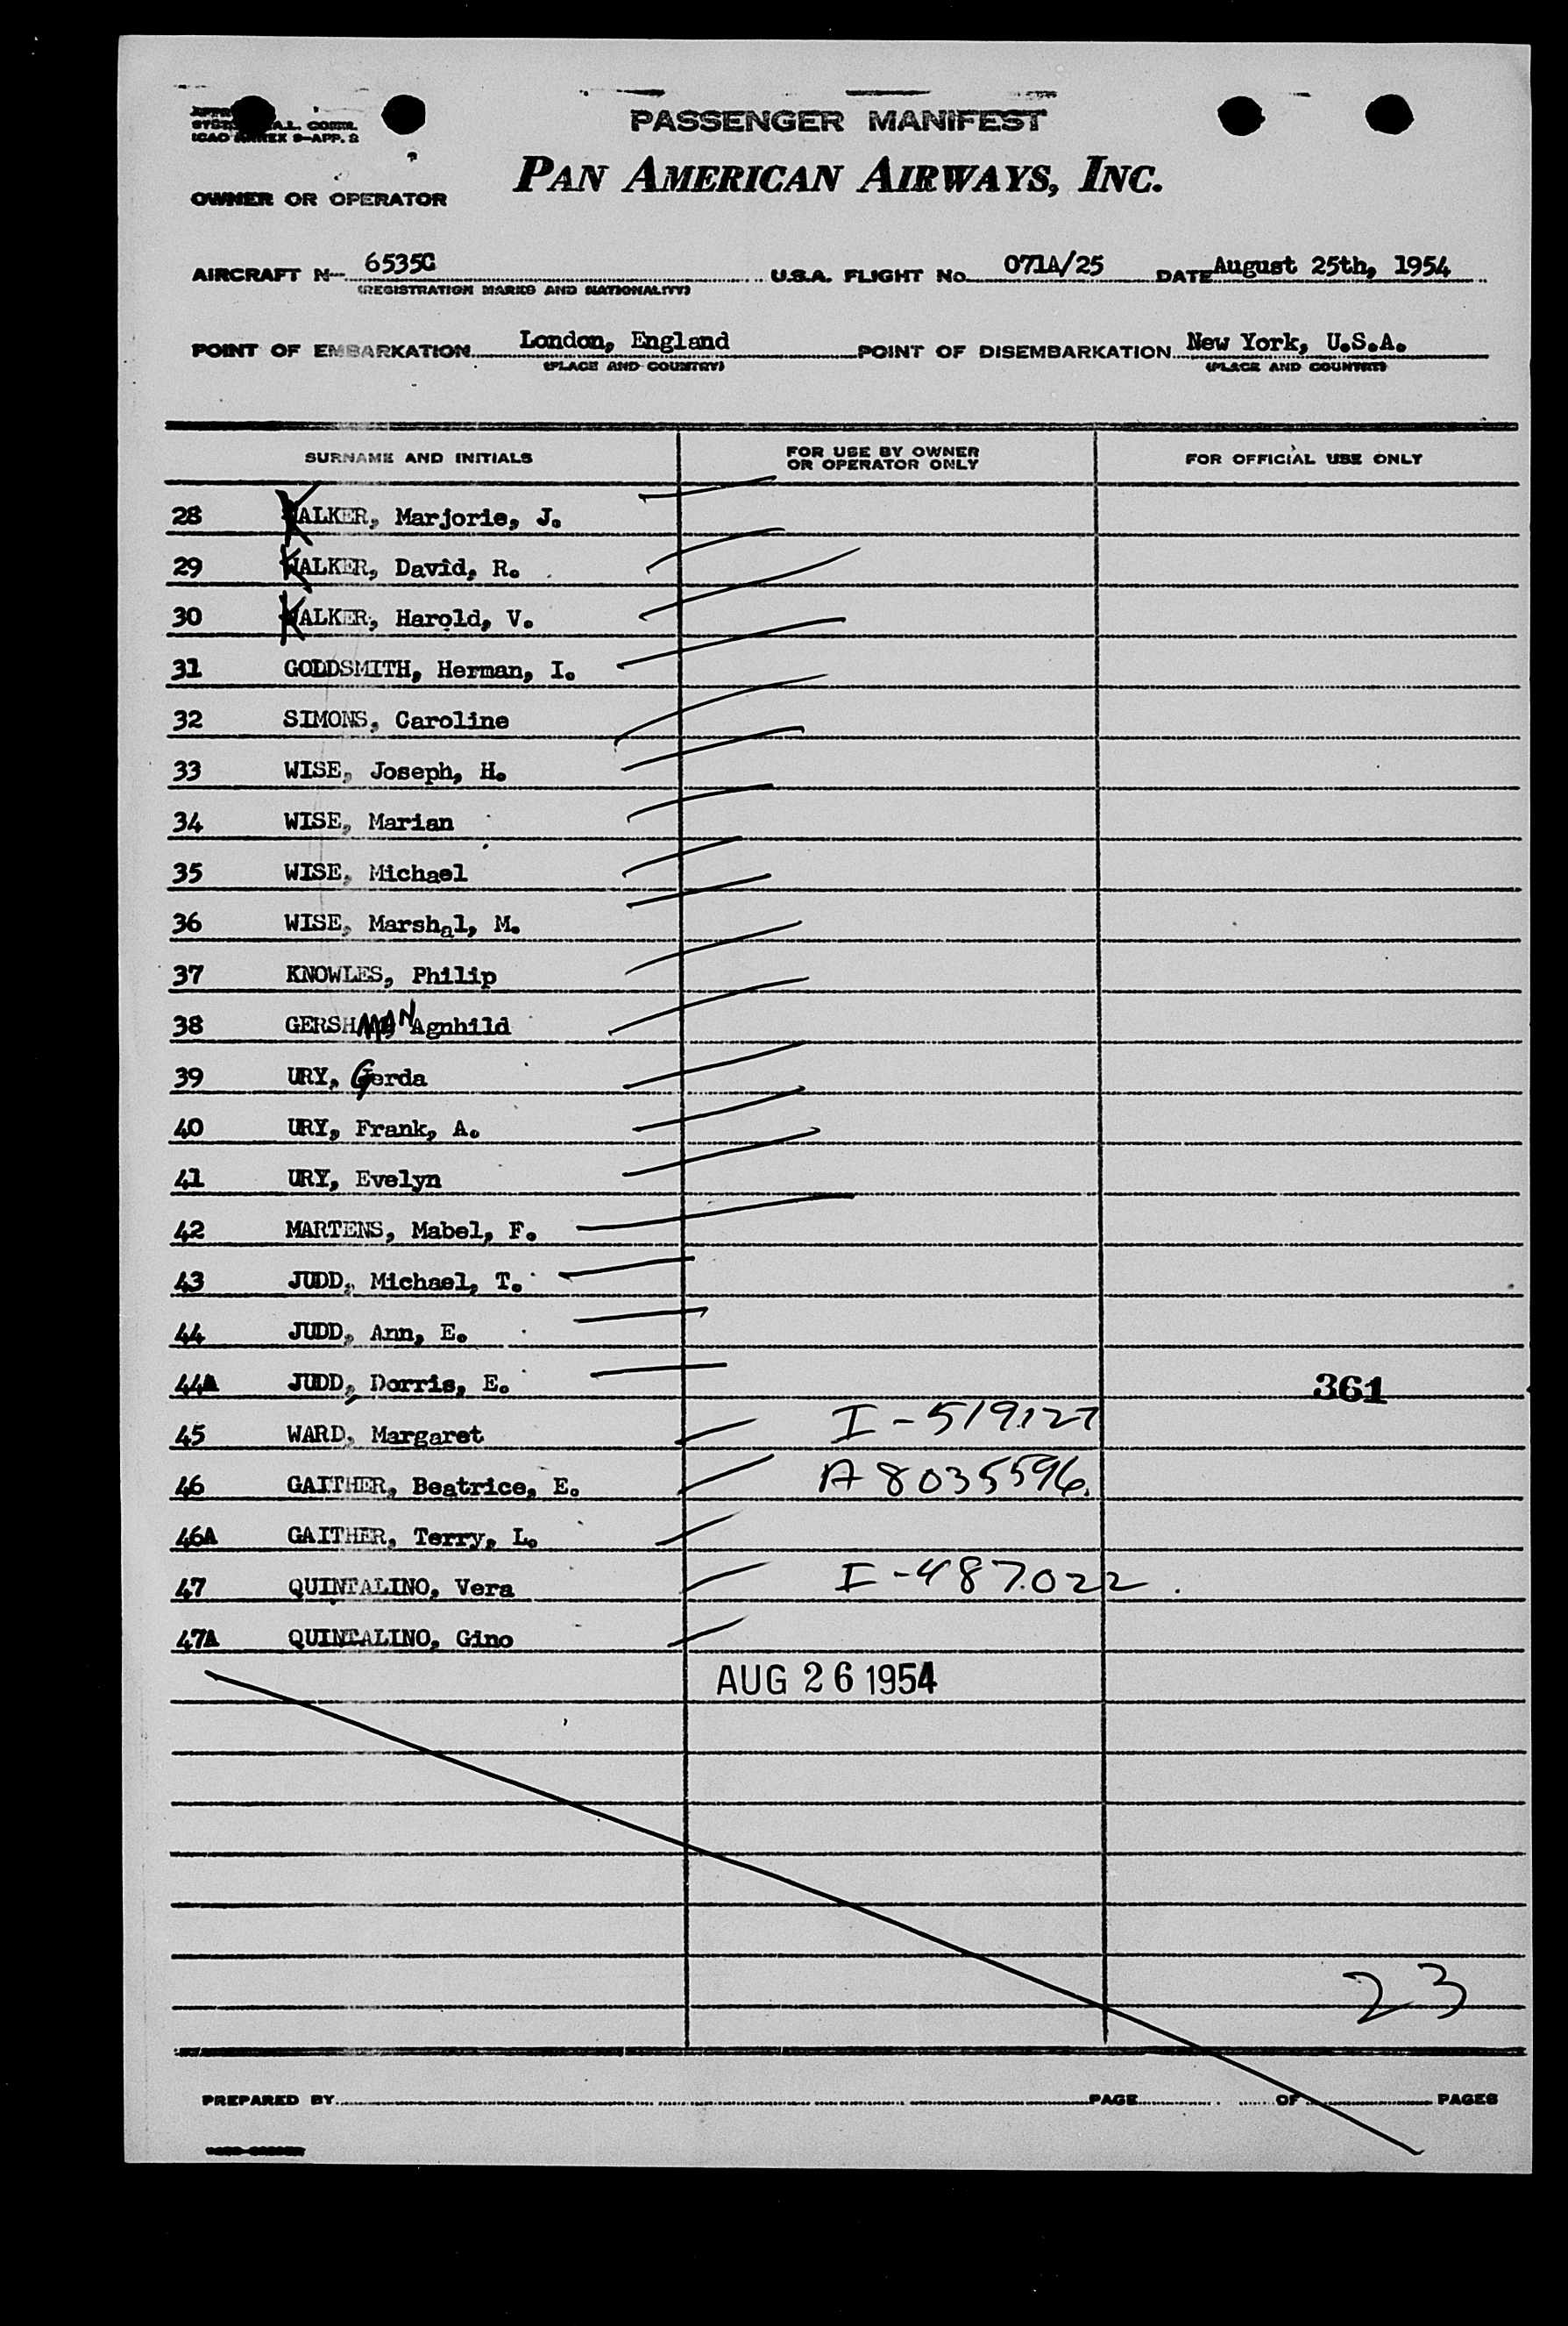 PASSENGER MANIFEST
A.L. COMM.
ICAO ANNEX 9-APP. 2
PAN AMERICAN AIRWAYS, INC.
OWNER OR OPERATOR
AIRCRAFT N- 6535C U.S.A. FLIGHT No. 071A/25 DATE August 25th, 1954
(REGISTRATION MARKS AND NATIONALITY)
POINT OF EMBARKATION London, England POINT OF DISEMBARKATION New York, U.S.A.
(PLACE AND COUNTRY) (PLACE AND COUNTRY)
SURNAME AND INITIALS FOR USE BY OWNER OR OPERATOR ONLY FOR OFFICIAL USE ONLY
28 WALKER, Marjorie, J.
29 WALKER, David, R.
30 WALKER, Harold, V.
31 GOLDSMITH, Herman, I.
32 SIMONS, Caroline
33 WISE, Joseph, H.
34 WISE, Marian
35 WISE, Michael
36 WISE, Marshal, M.
37 KNOWLES, Philip
38 GERSHMAN Agnhild
39 URY, Gerda
40 URY, Frank, A.
41 URY, Evelyn
42 MARTENS, Mabel, F.
43 JUDD, Michael, T.
44 JUDD, Ann, E.
44A JUDD, Dorris, E. 361
45 WARD, Margaret I-519127
46 GAITHER, Beatrice, E. A8035596
46A GAITHER, Terry, L.
47 QUINTALINO, Vera I-487022
47A QUINTALINO, Gino
AUG 26 1954
23
PREPARED BY PAGE OF PAGES